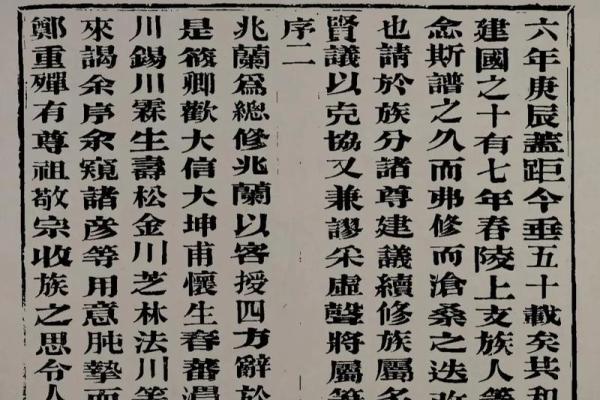 六年庚辰蓋距今垂五十載矣共和
建國之十有七年春陵上支族人等
念斯譜之久而弗修而滄桑之迭改
也請於族分諸尊建議續修族屬多
賢議以克協又兼謬采虛聲將屬筆
序二
兆蘭為總修兆蘭以客授四方辭於
是筱卿歡大信大坤甫懷生春蕃潤
川錫川霖生壽松金川芝林法川等
來謁余序余窺諸彥等用意肫摯而
鄭重殫有尊祖敬宗收族之思令人